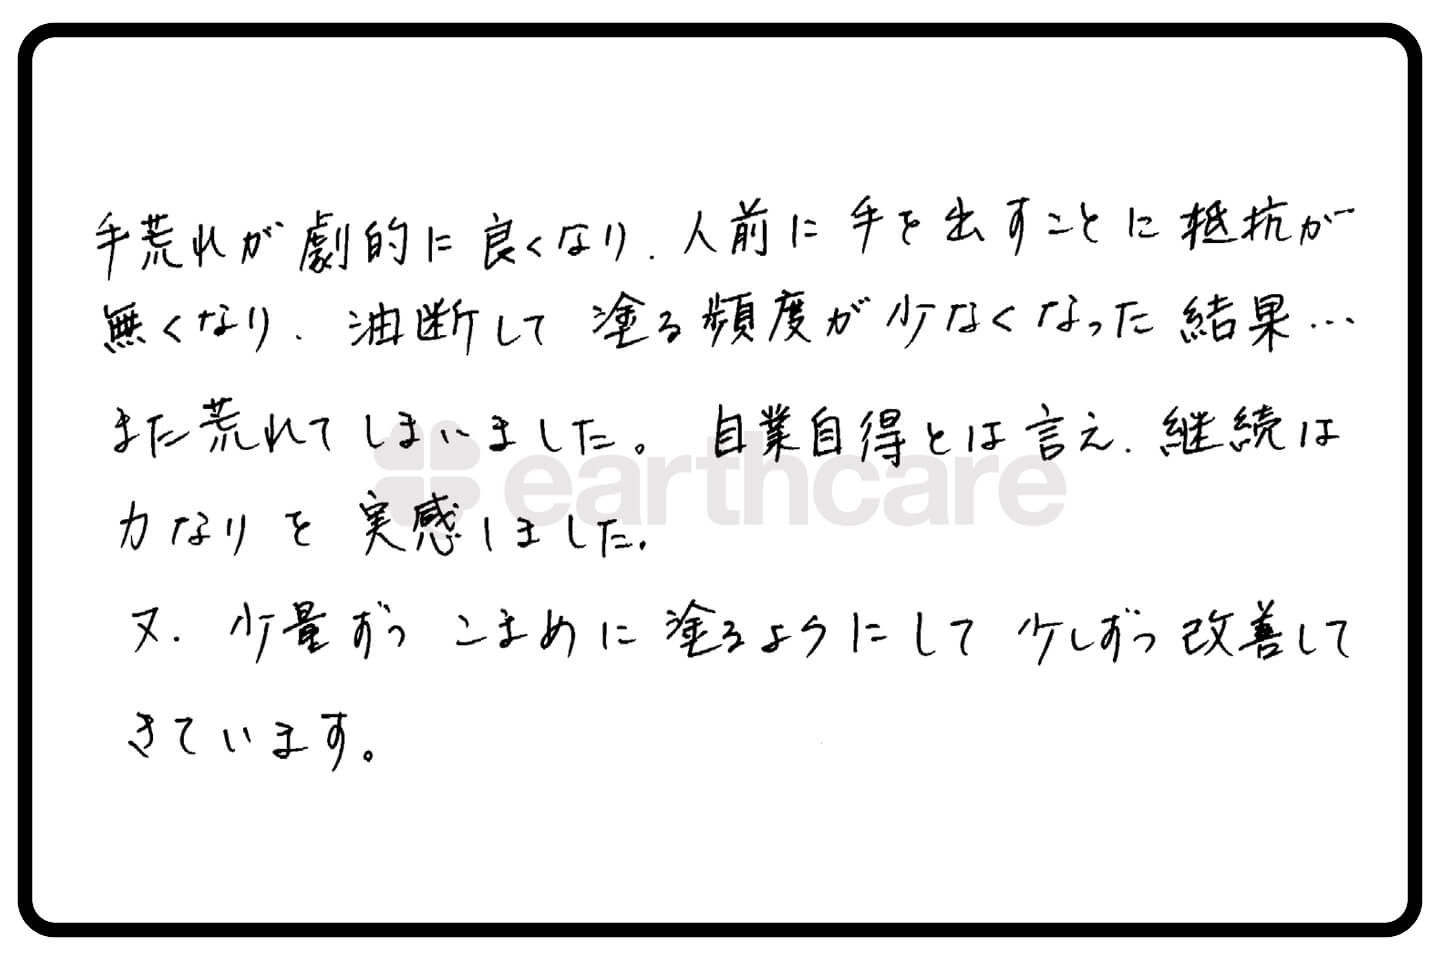 手荒れが劇的に良くなり、人前に手を出すことに抵抗が
無くなり、油断して塗る頻度が少なくなった結果…
また荒れてしまいました。自業自得とは言え、継続は
力なりを実感しました。
又、少量ずつこまめに塗るようにして少しずつ改善して
きています。
earthcare